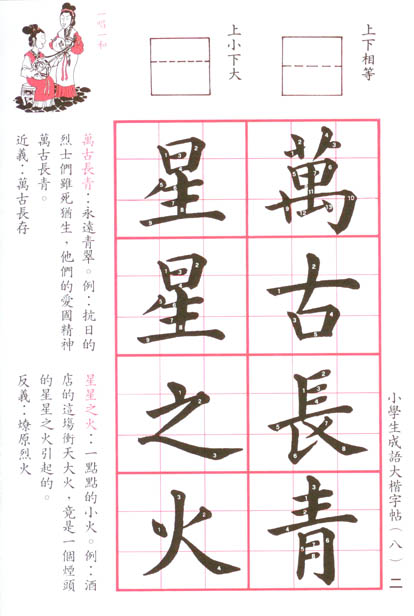 上下相等
上小下大
一唱一和
萬古長青
星星之火
萬古長青：永遠青翠。例：抗日的
烈士們雖死猶生，他們的愛國精神
萬古長青。
近義：萬古長存
星星之火：一點點的小火。例：酒
店的這場衝天大火，竟是一個煙頭
的星星之火引起的。
反義：燎原烈火
小學生成語大楷字帖（八）
二